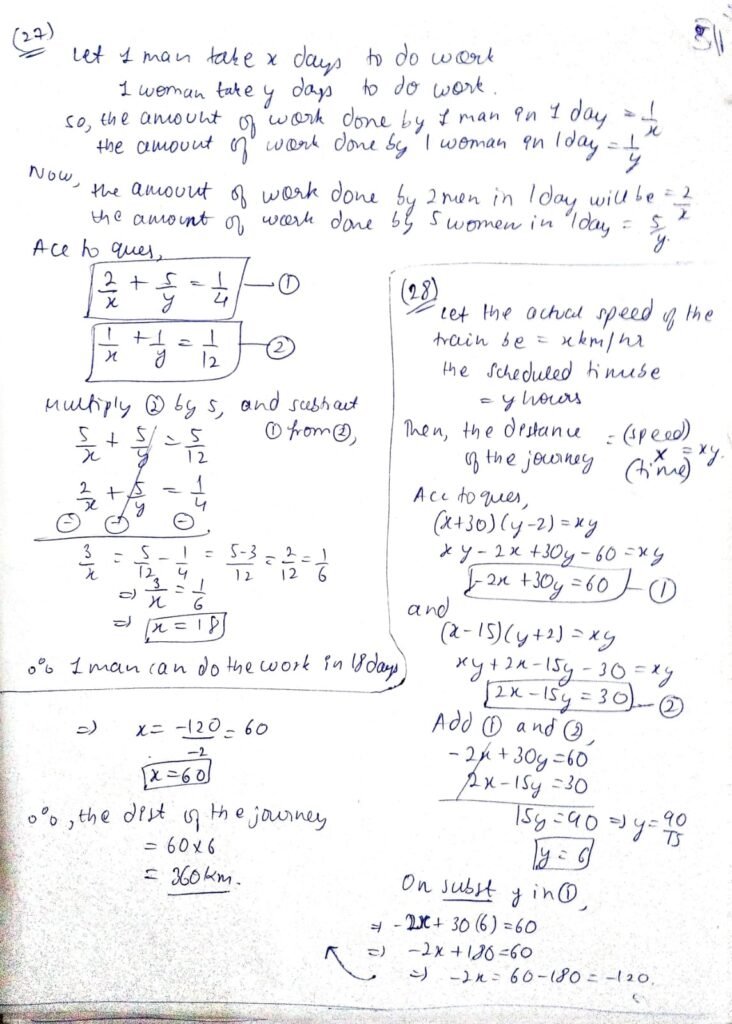 (27)
Let 1 man take x days to do work
1 woman take y days to do work.
so, the amount of work done by 1 man in 1 day = 1/x
the amount of work done by 1 woman in 1 day = 1/y
Now, the amount of work done by 2 men in 1 day will be = 2/x
the amount of work done by 5 women in 1 day = 5/y.
Acc to ques,
2/x + 5/y = 1/4 — ①
1/x + 1/y = 1/12 — ②
Multiply ② by 5, and subtract
① from ②,
5/x + 5/y = 5/12
2/x + 5/y = 1/4
⊖ ⊖ ⊖
3/x = 5/12 - 1/4 = 5-3/12 = 2/12 = 1/6
⇒ 3/x = 1/6
⇒ x = 18
∴ 1 man can do the work in 18 days
(28)
Let the actual speed of the
train be = x km/hr
the scheduled time be
= y hours
Then, the distance of the journey = (speed) x (time) = xy.
Acc to ques,
(x+30)(y-2) = xy
xy - 2x + 30y - 60 = xy
-2x + 30y = 60 — ①
and
(x-15)(y+2) = xy
xy + 2x - 15y - 30 = xy
2x - 15y = 30 — ②
Add ① and ②,
-2x + 30y = 60
2x - 15y = 30
15y = 90 ⇒ y = 90/15
y = 6
On subst y in ①,
⇒ -2x + 30(6) = 60
⇒ -2x + 180 = 60
⇒ -2x = 60 - 180 = -120.
⇒ x = -120/-2 = 60
x = 60
∴, the dist of the journey
= 60 x 6
= 360 km.